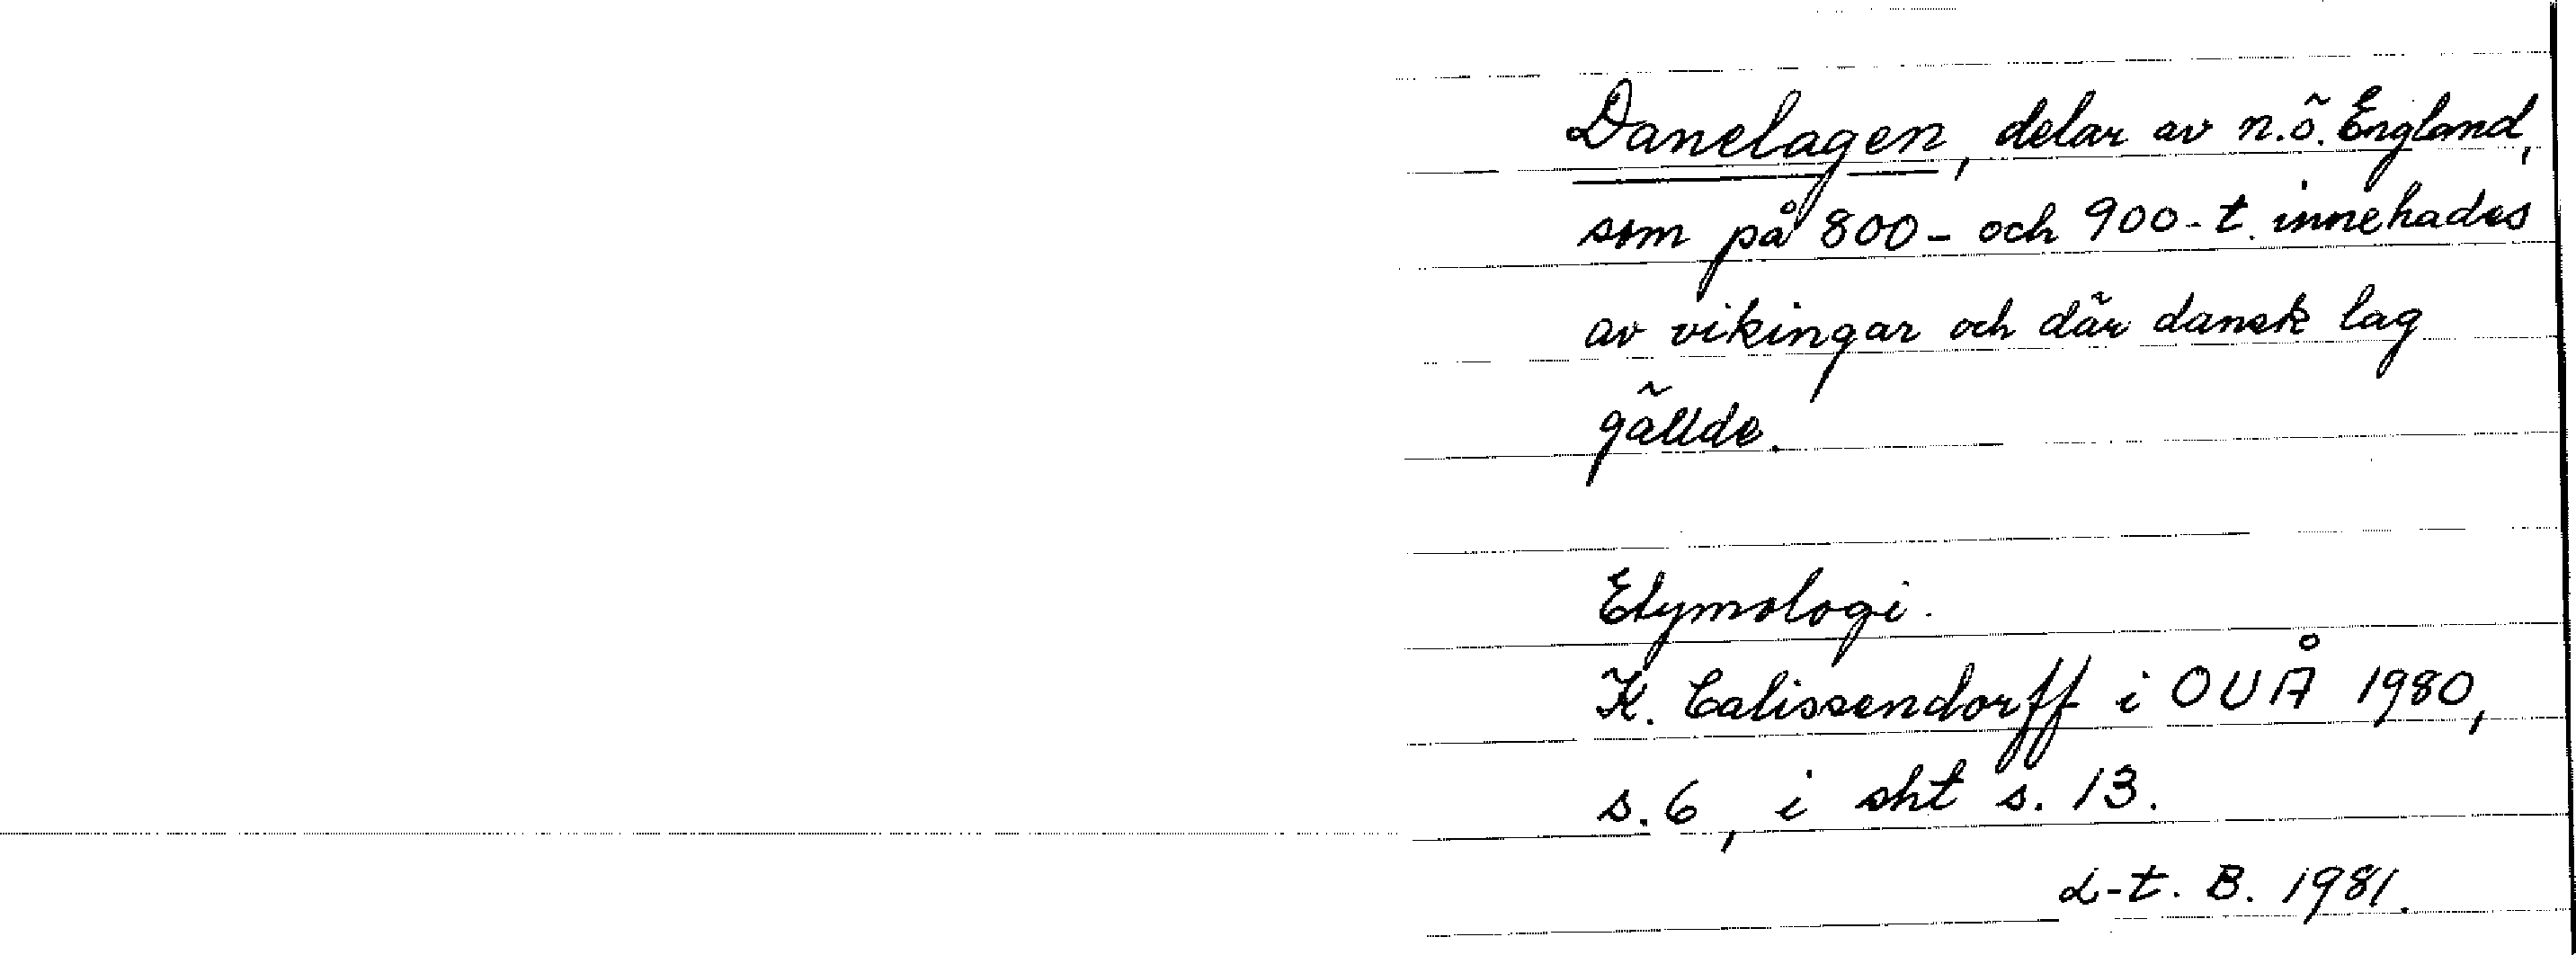 Danelagen, delar av n.ö. England,
som på 800- och 900-t. innehades
av vikingar och där dansk lag
gällde.
Etymologi.
K. Calissendorff i OUÅ 1980,
s. 6, i sht s. 13.
L-t. B. 1981.